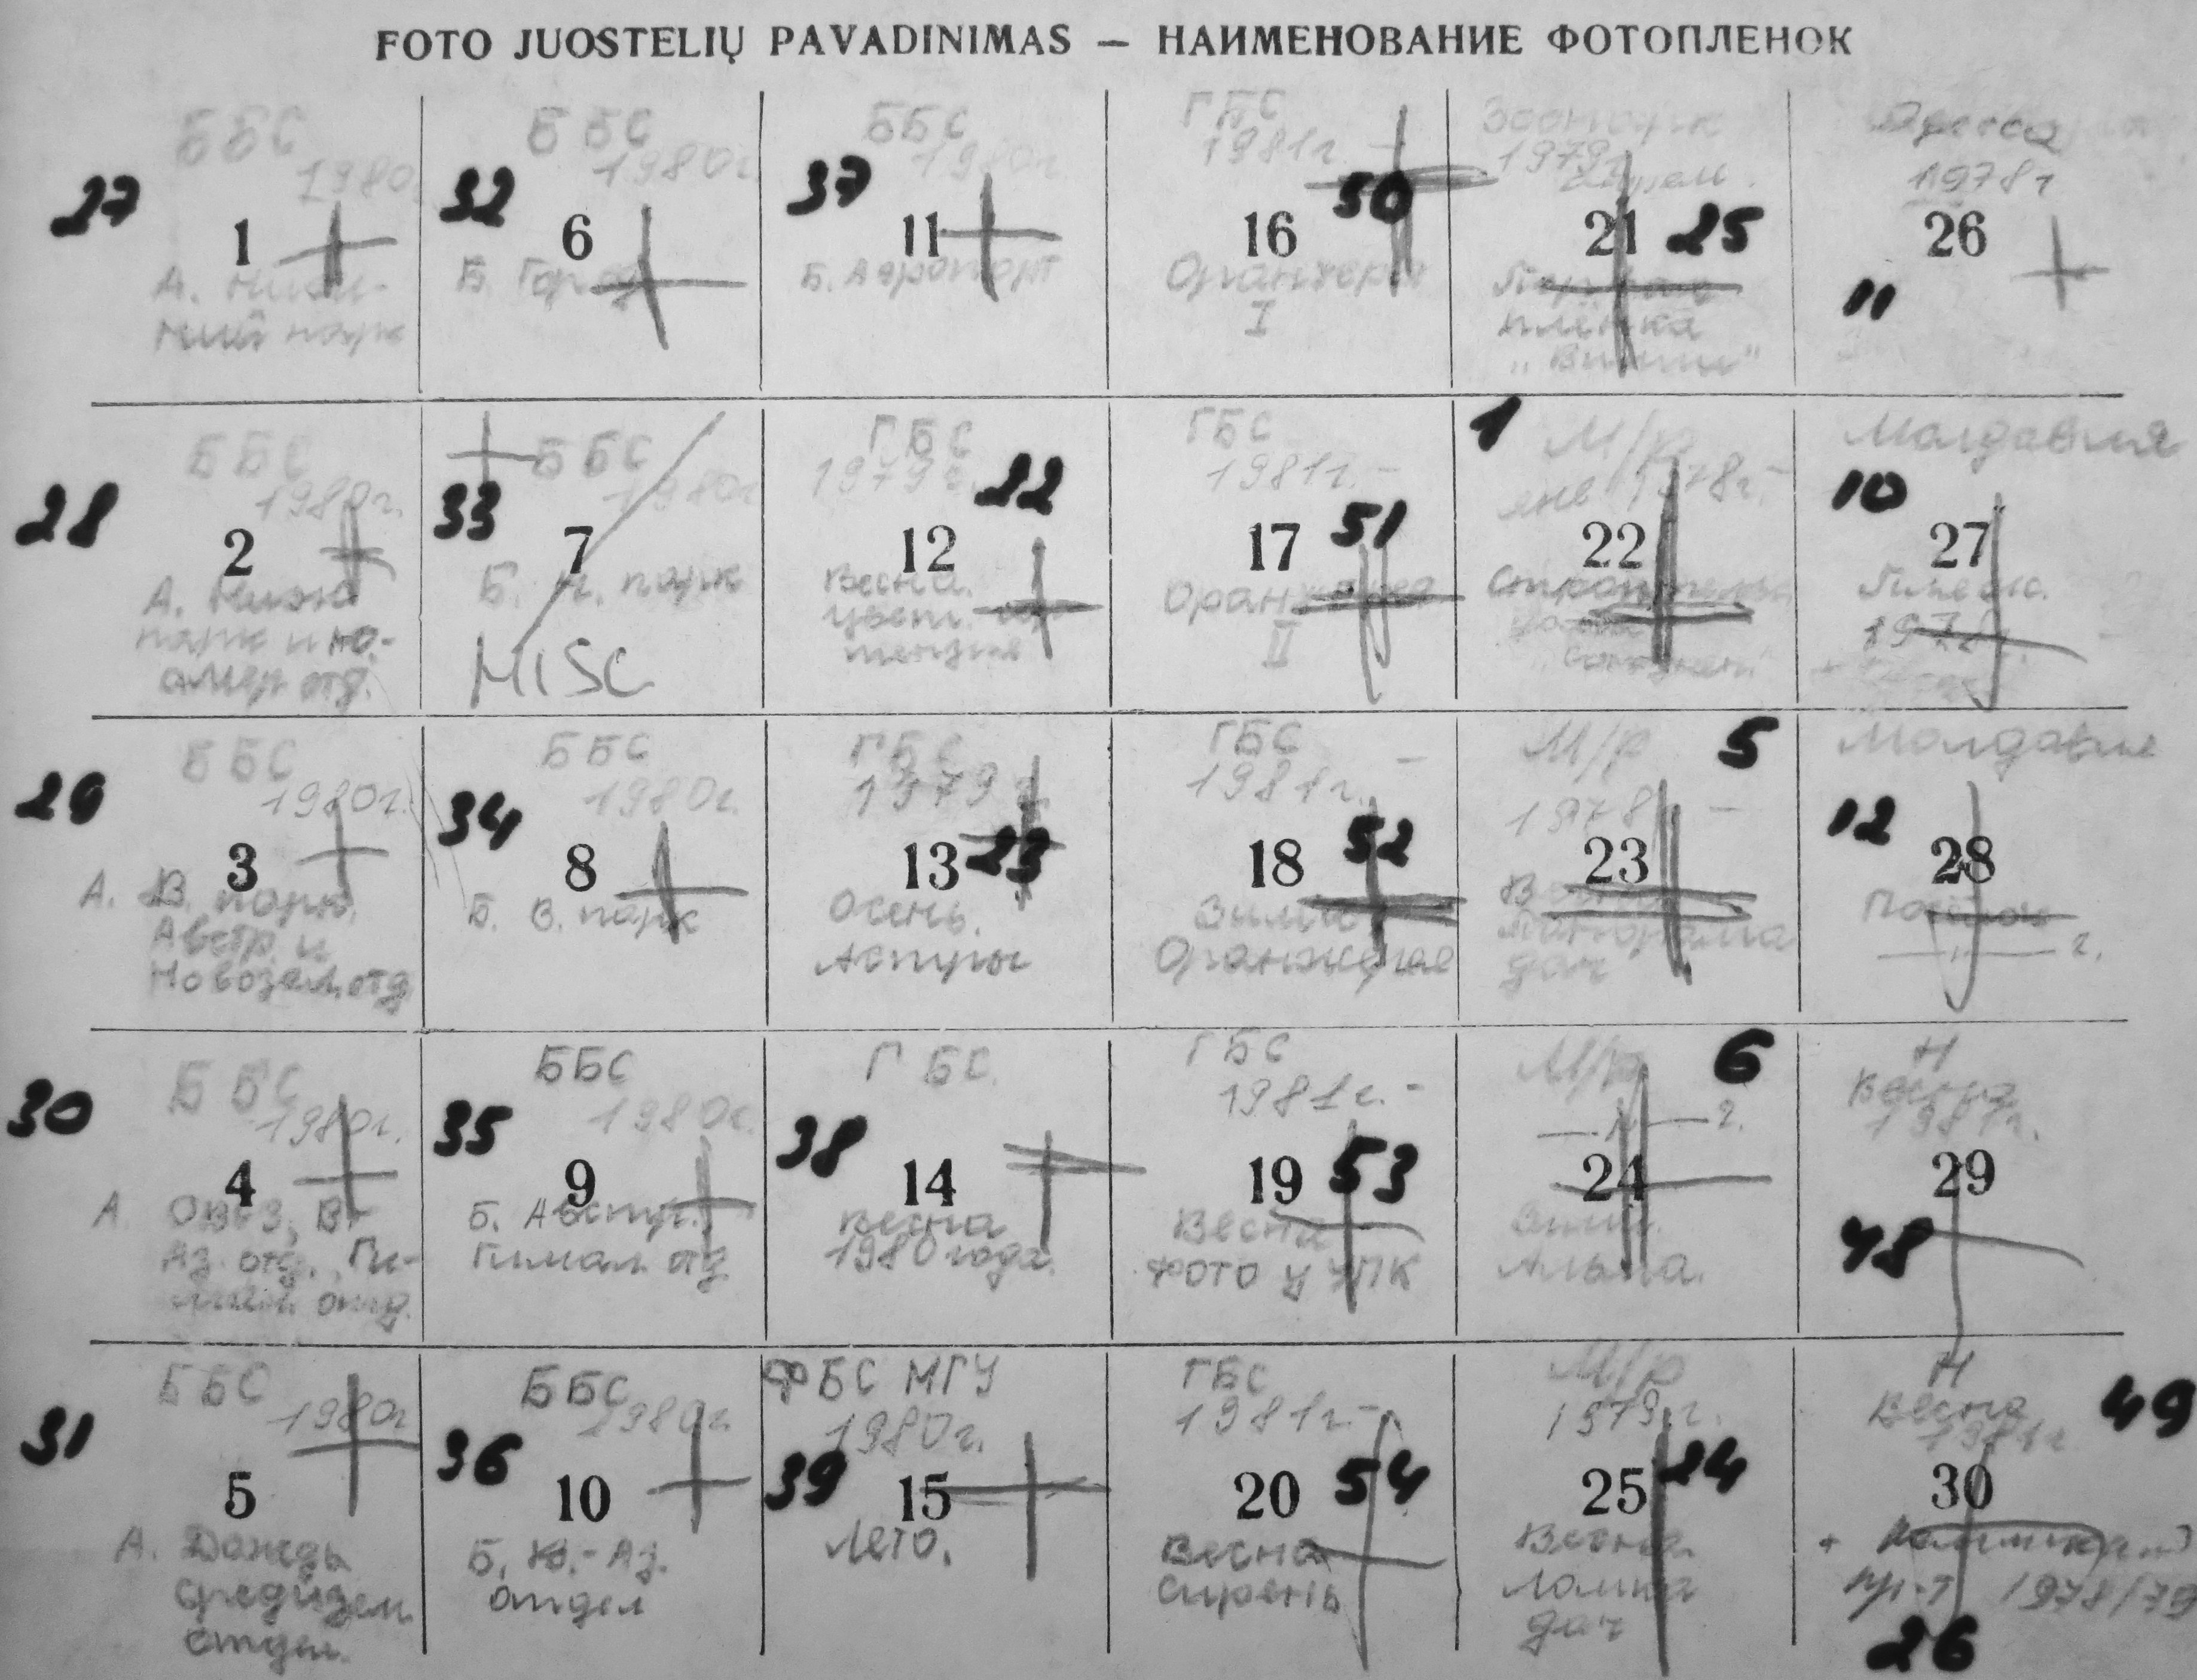 FOTO JUOSTELIŲ PAVADINIMAS — НАИМЕНОВАНИЕ ФОТОПЛЕНОК
ББС
1980
27
1
А. Ниж-
ний парк
ББС
1980г
32
6
Б. Город
ББС
1980г
37
11
Б. Аэропорт
ГБС
1981г. -
50
16
Оранжерея
I
Зоопарк
1979г
21 25
Первая
пленка
Одесса
1978г
26
11
ББС
1980г.
28
2
А. Нижн
парк и
амер отд.
ББС
1980г
33
7
Б. Н. парк
MISC
ГБС
1979г. 22
12
Весна.
ГБС
1981г. -
51
17
Оранжерея
II
1
М/р
янв 1978г. -
22
Молдавия
10
27
1978г.
ББС
1980г.
29
3
А. В. парк.
Австр. и
Новозел. отд
ББС
1980г.
34
8
Б. В. парк
ГБС
1979г
13 23
Осень.
Астры
ГБС
1981г. -
52
18
Зима
Оранжерея
М/р 5
1978 -
23
Панорама
дач
Молдавия
12
28
— " — г.
ББС
1980г.
30
4
А.
Аз. отд., Ги-
мал. отд.
ББС
1980г.
35
9
Б. Австр.
Гимал. отд
ГБС
38
14
весна
1980 года.
ГБС
1981г. -
19 53
Весна
Фото у УПК
М/р 6
— " — г.
24
Н
Весна
1981г.
29
48
ББС
1980г
31
5
А. Дождь
средизем.
отдел.
ББС
1980г.
36
10
Б. Ю.-Аз.
отдел
ФБС МГУ
1980г.
39
15
Лето.
ГБС
1981г. -
20 54
Весна
сирень
М/р
1979г.
25 24
Весна.
дач
Н
Весна 49
1981г
30
+
пр-т 1978/79
26